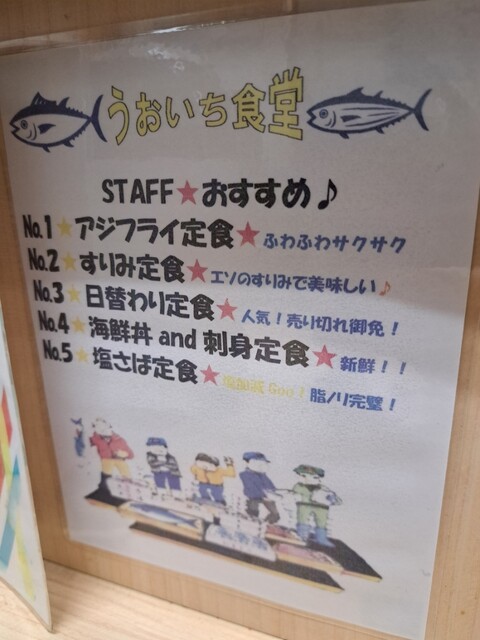 うおいち食堂
STAFF★おすすめ♪
No.1★アジフライ定食★ふわふわサクサク
No.2★すりみ定食★エソのすりみで美味しい♪
No.3★日替わり定食★人気！売り切れ御免！
No.4★海鮮丼 and 刺身定食★新鮮！！
No.5★塩さば定食★塩加減 Goo！脂ノリ完璧！